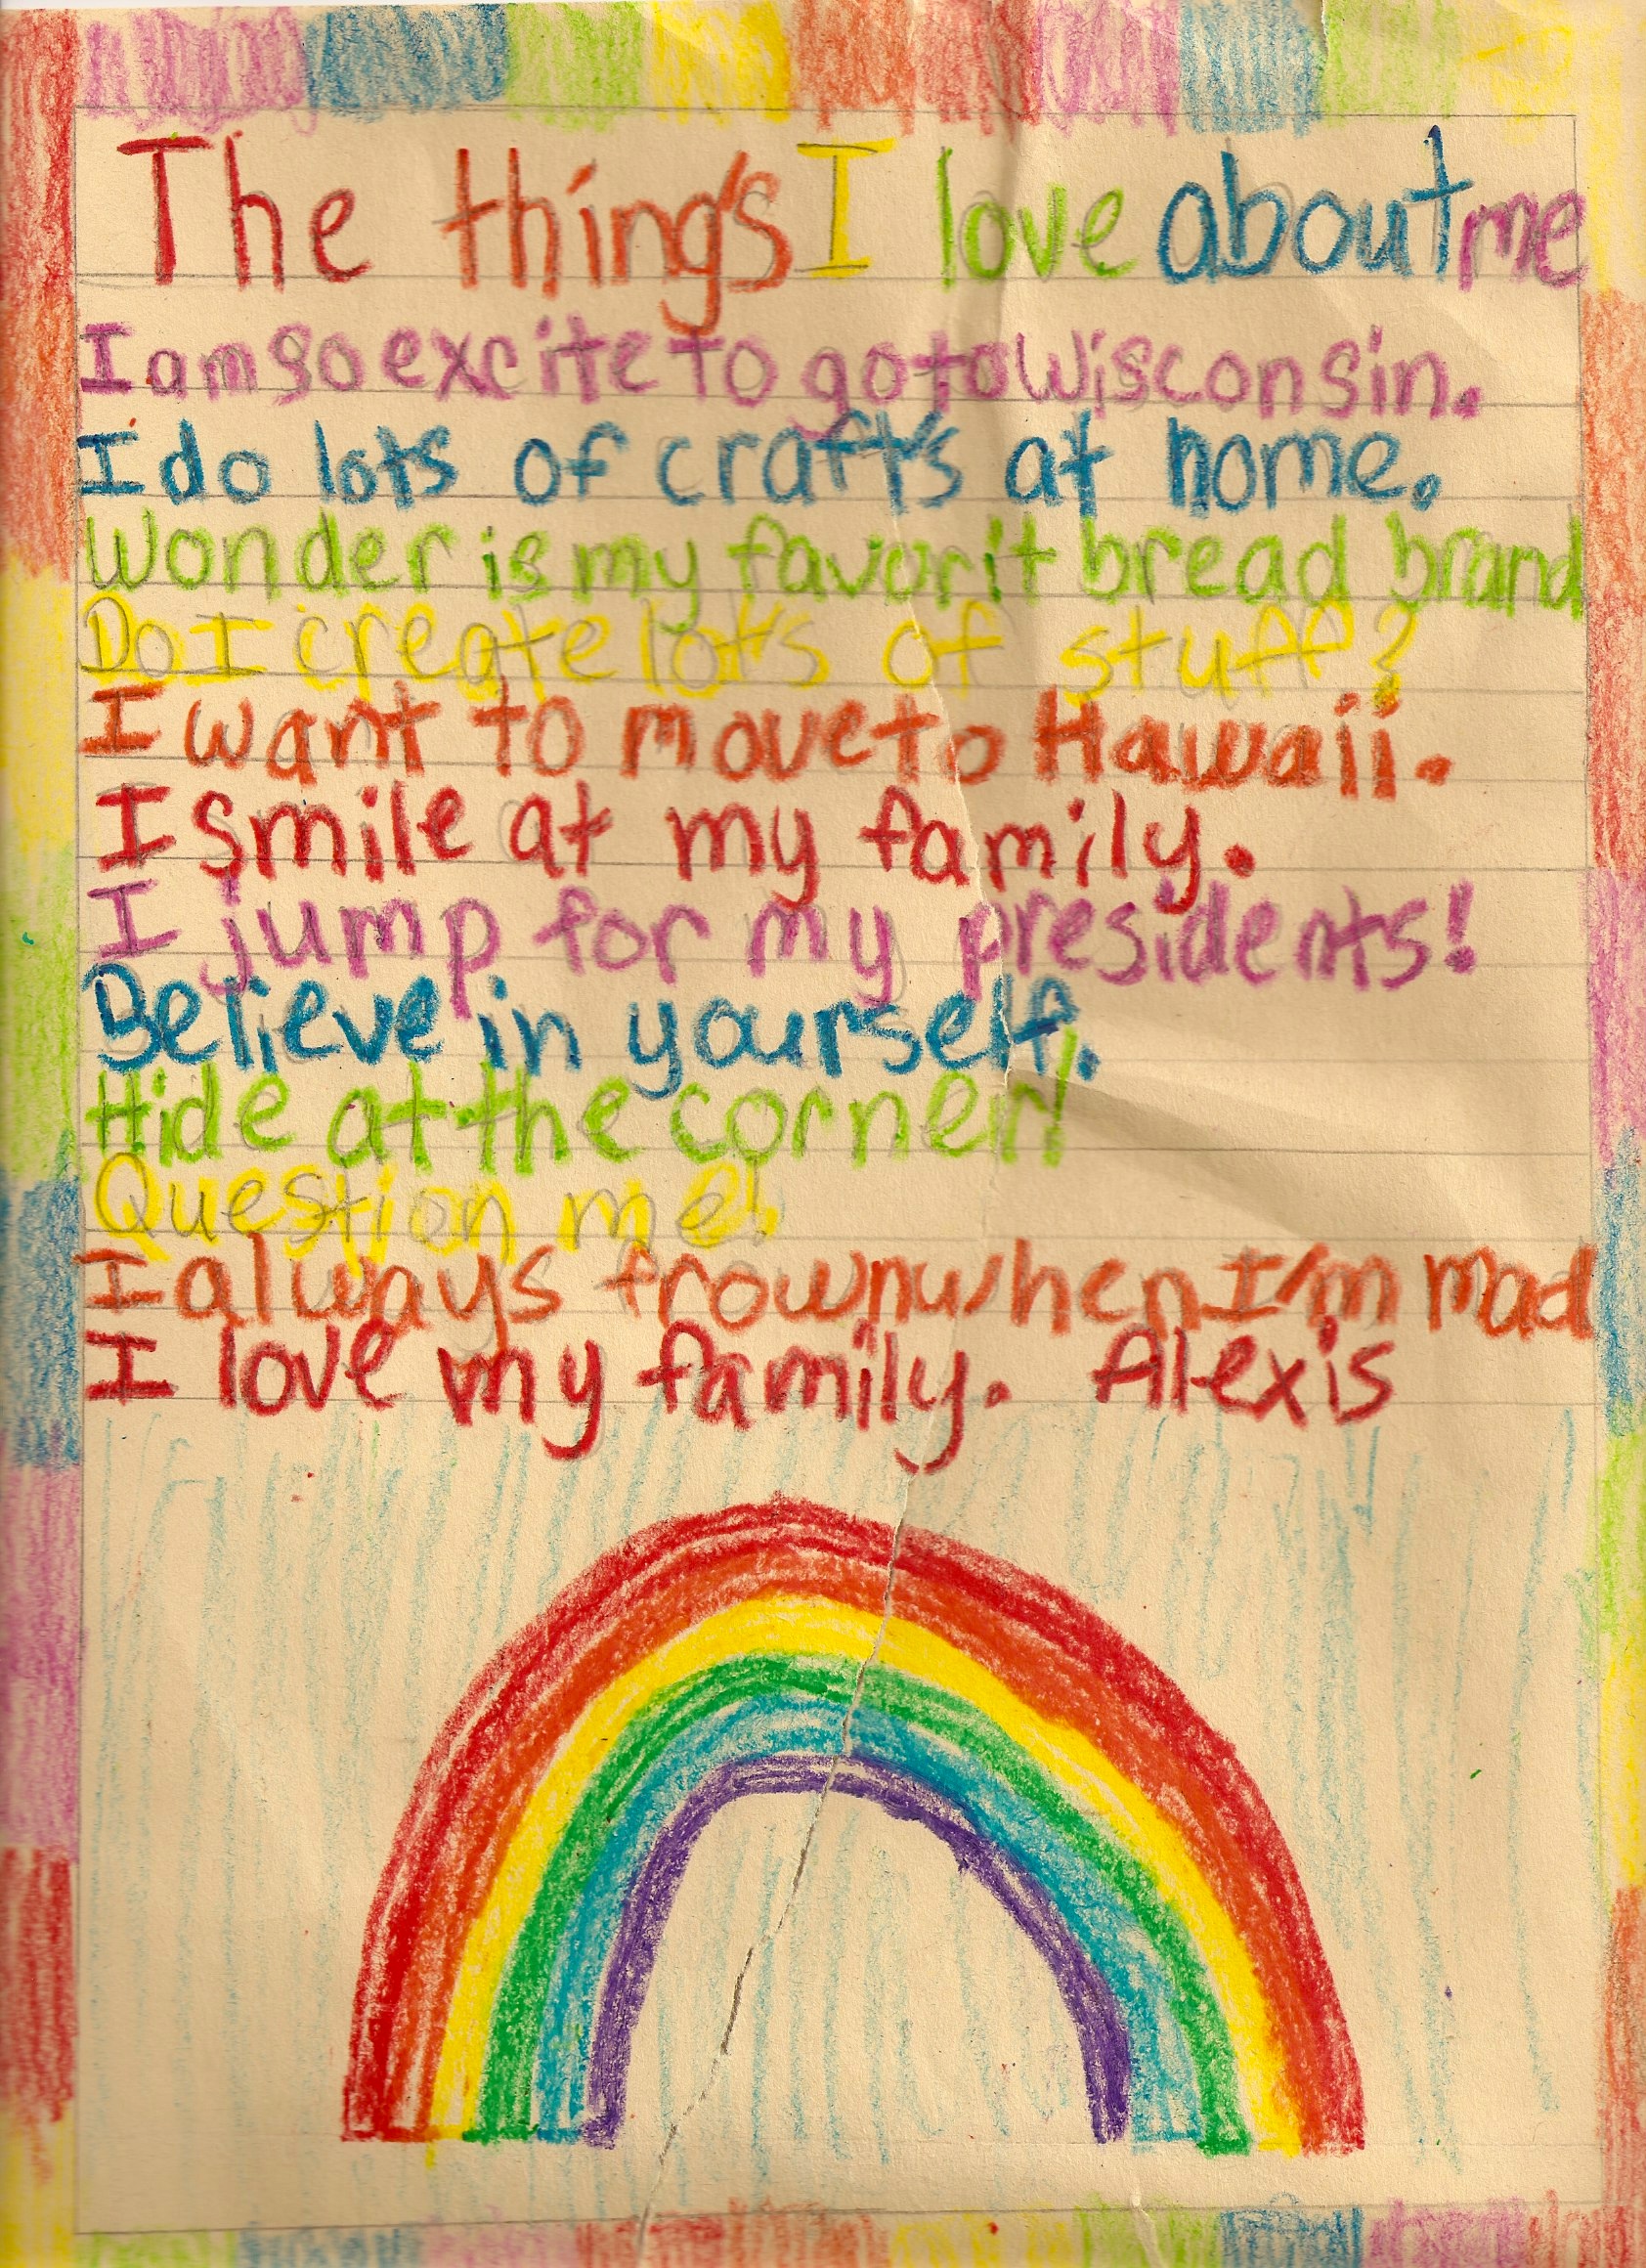 The things I love about me
I am so excite to go to Wisconsin.
I do lots of crafts at home.
Wonder is my favorit bread brand
Do I create lots of stuff?
I want to move to Hawaii.
I smile at my family.
I jump for my presidents!
Believe in yourself.
Hide at the corner!
Question me!
I always frown when I'm mad
I love my family. Alexis